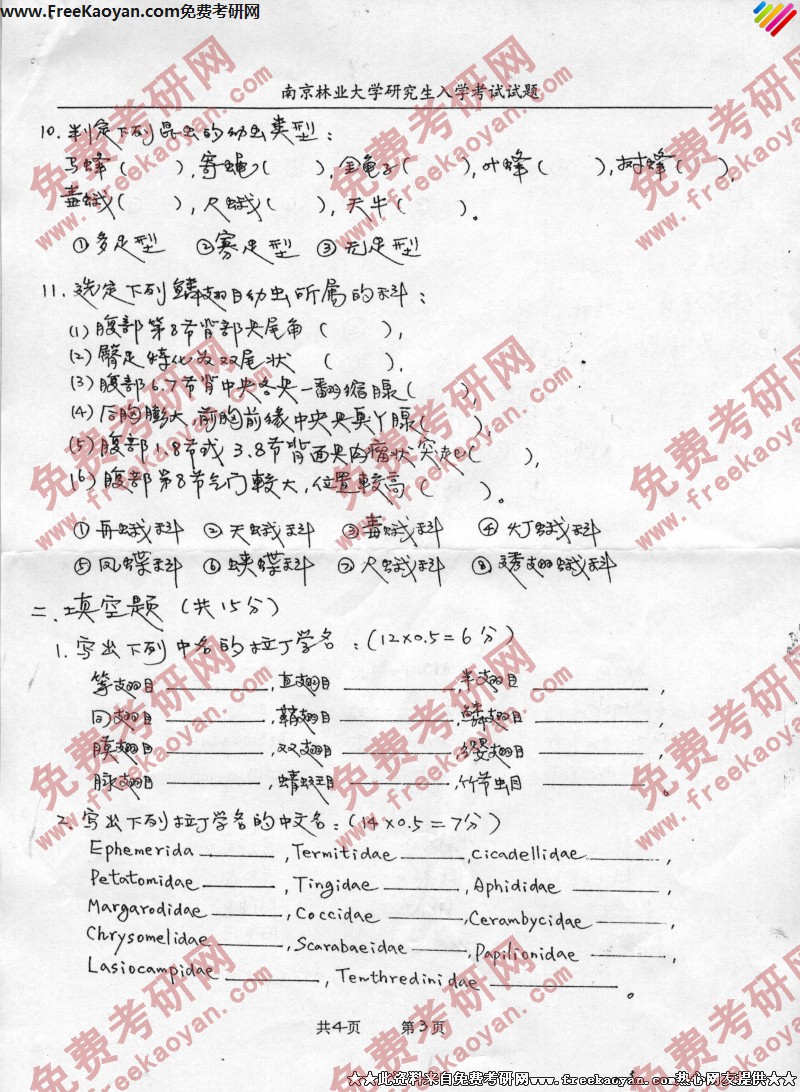 www.FreeKaoyan.com免费考研网
南京林业大学研究生入学考试试题
10. 判定下列昆虫的幼虫类型：
马蜂（ ），寄蝇（ ），金龟子（ ），叶蜂（ ），树蜂（ ），
毒蛾（ ），尺蛾（ ），天牛（ ）。
①多足型 ②寡足型 ③无足型
11. 选定下列鳞翅目幼虫所属的科：
(1) 腹部第8节背部具尾角（ ），
(2) 臀足特化为双尾状（ ），
(3) 腹部6.7节背中央各具一翻缩腺（ ），
(4) 后胸膨大，前胸前缘中央具臭丫腺（ ），
(5) 腹部1.8节或3.8节背面具肉瘤状突起（ ），
(6) 腹部第8节气门较大，位置较高（ ）。
①舟蛾科 ②天蛾科 ③毒蛾科 ④灯蛾科
⑤凤蝶科 ⑥蛱蝶科 ⑦尺蛾科 ⑧透翅蛾科
二、填空题（共15分）
1. 写出下列中名的拉丁学名：（12×0.5=6分）
等翅目 ，直翅目 ，半翅目 ，
同翅目 ，鞘翅目 ，鳞翅目 ，
膜翅目 ，双翅目 ，缨翅目 ，
脉翅目 ，蜻蜓目 ，竹节虫目 。
2. 写出下列拉丁学名的中文名：（14×0.5=7分）
Ephemerida ，Termitidae ，cicadellidae ，
Petatomidae ，Tingidae ，Aphididae ，
Margarodidae ，Coccidae ，Cerambycidae ，
Chrysomelidae ，Scarabaeidae ，Papilionidae ，
Lasiocampidae ，Tenthredinidae 。
共4页 第3页
★★此资料来自免费考研网www.freekaoyan.com热心网友提供★★
免费考研网
www.freekaoyan.com